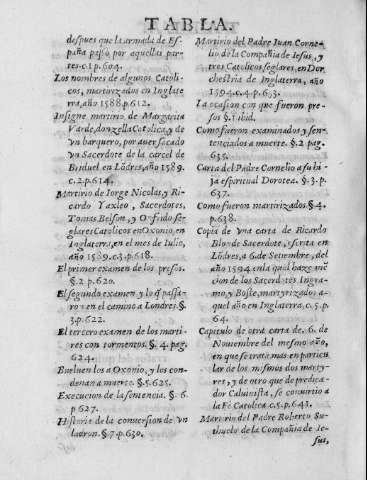 TABLA.
despues que la armada de Es-
paña passò por aquellas par-
tes. c.1. p.604.
Los nombres de algunos Catoli-
cos, martirizados en Inglate
rra, año 1588. p.612.
Insigne martirio de Margarita
Varde, donzella Catolica, y de
vn barquero, por auer sacado
vn Sacerdote de la carcel de
Briduel en Lõdres, año 1589.
c.2. p.614.
Martirio de Iorge Nicolas, y Ri-
cardo Yaxleo, Sacerdotes,
Tomas Belson, y
glares Catolicos en Oxonio, en
Inglaterra, en el mes de Iulio,
año 1589. c.3. p.618.
El primer examen de los presos.
§.2. p.620.
El segundo examen y lo q̃ passa-
ron en el camino a Londres. §.
3. p.622.
El tercero examen de los marti-
res con tormentos. §.4. pag.
624.
Bueluenlos a Oxonio, y los con-
denan a muerte. §.5. 625.
Execucion de la sentencia. §.6.
p.627.
Historia de la conuersion de vn
ladron. §.7. p.630.
Martirio del Padre Iuan Corne-
lio, de la Compañia de Iesus, y
tres Catolicos seglares, en Dor
chestria de Inglaterra, año
1594. c.4. p.633.
La ocasion con que fueron pre-
sos §.1. ibid.
Como fueron examinados y sen-
tenciados a muerte. §.2. pag.
635.
Carta del Padre Cornelio a su hi
ja espiritual Dorotea. §.3. p.
637.
Como fueron martirizados. §.4.
p.638.
Copia de vna carta de Ricardo
Blonde Sacerdote, escrita en
Lõdres, a 6. de Setiembre, del
año 1594. en la qual haze men-
cion de los Sacerdotes Ingra-
mo, y Boste, martyrizados a-
quel año en Inglaterra. c.5. p.
64.
Capitulo de otra carta de .6. de
Noviembre del mesmo año,
en que se trata mas en particu
lar de los mismos dos marty-
res, y de otro que de predica-
dor Caluinista, se conuertio a
la Fè Catolica c.5. p.643.
Martirio del Padre Roberto Su-
thuelo de la Compañia de Ie-
sus,